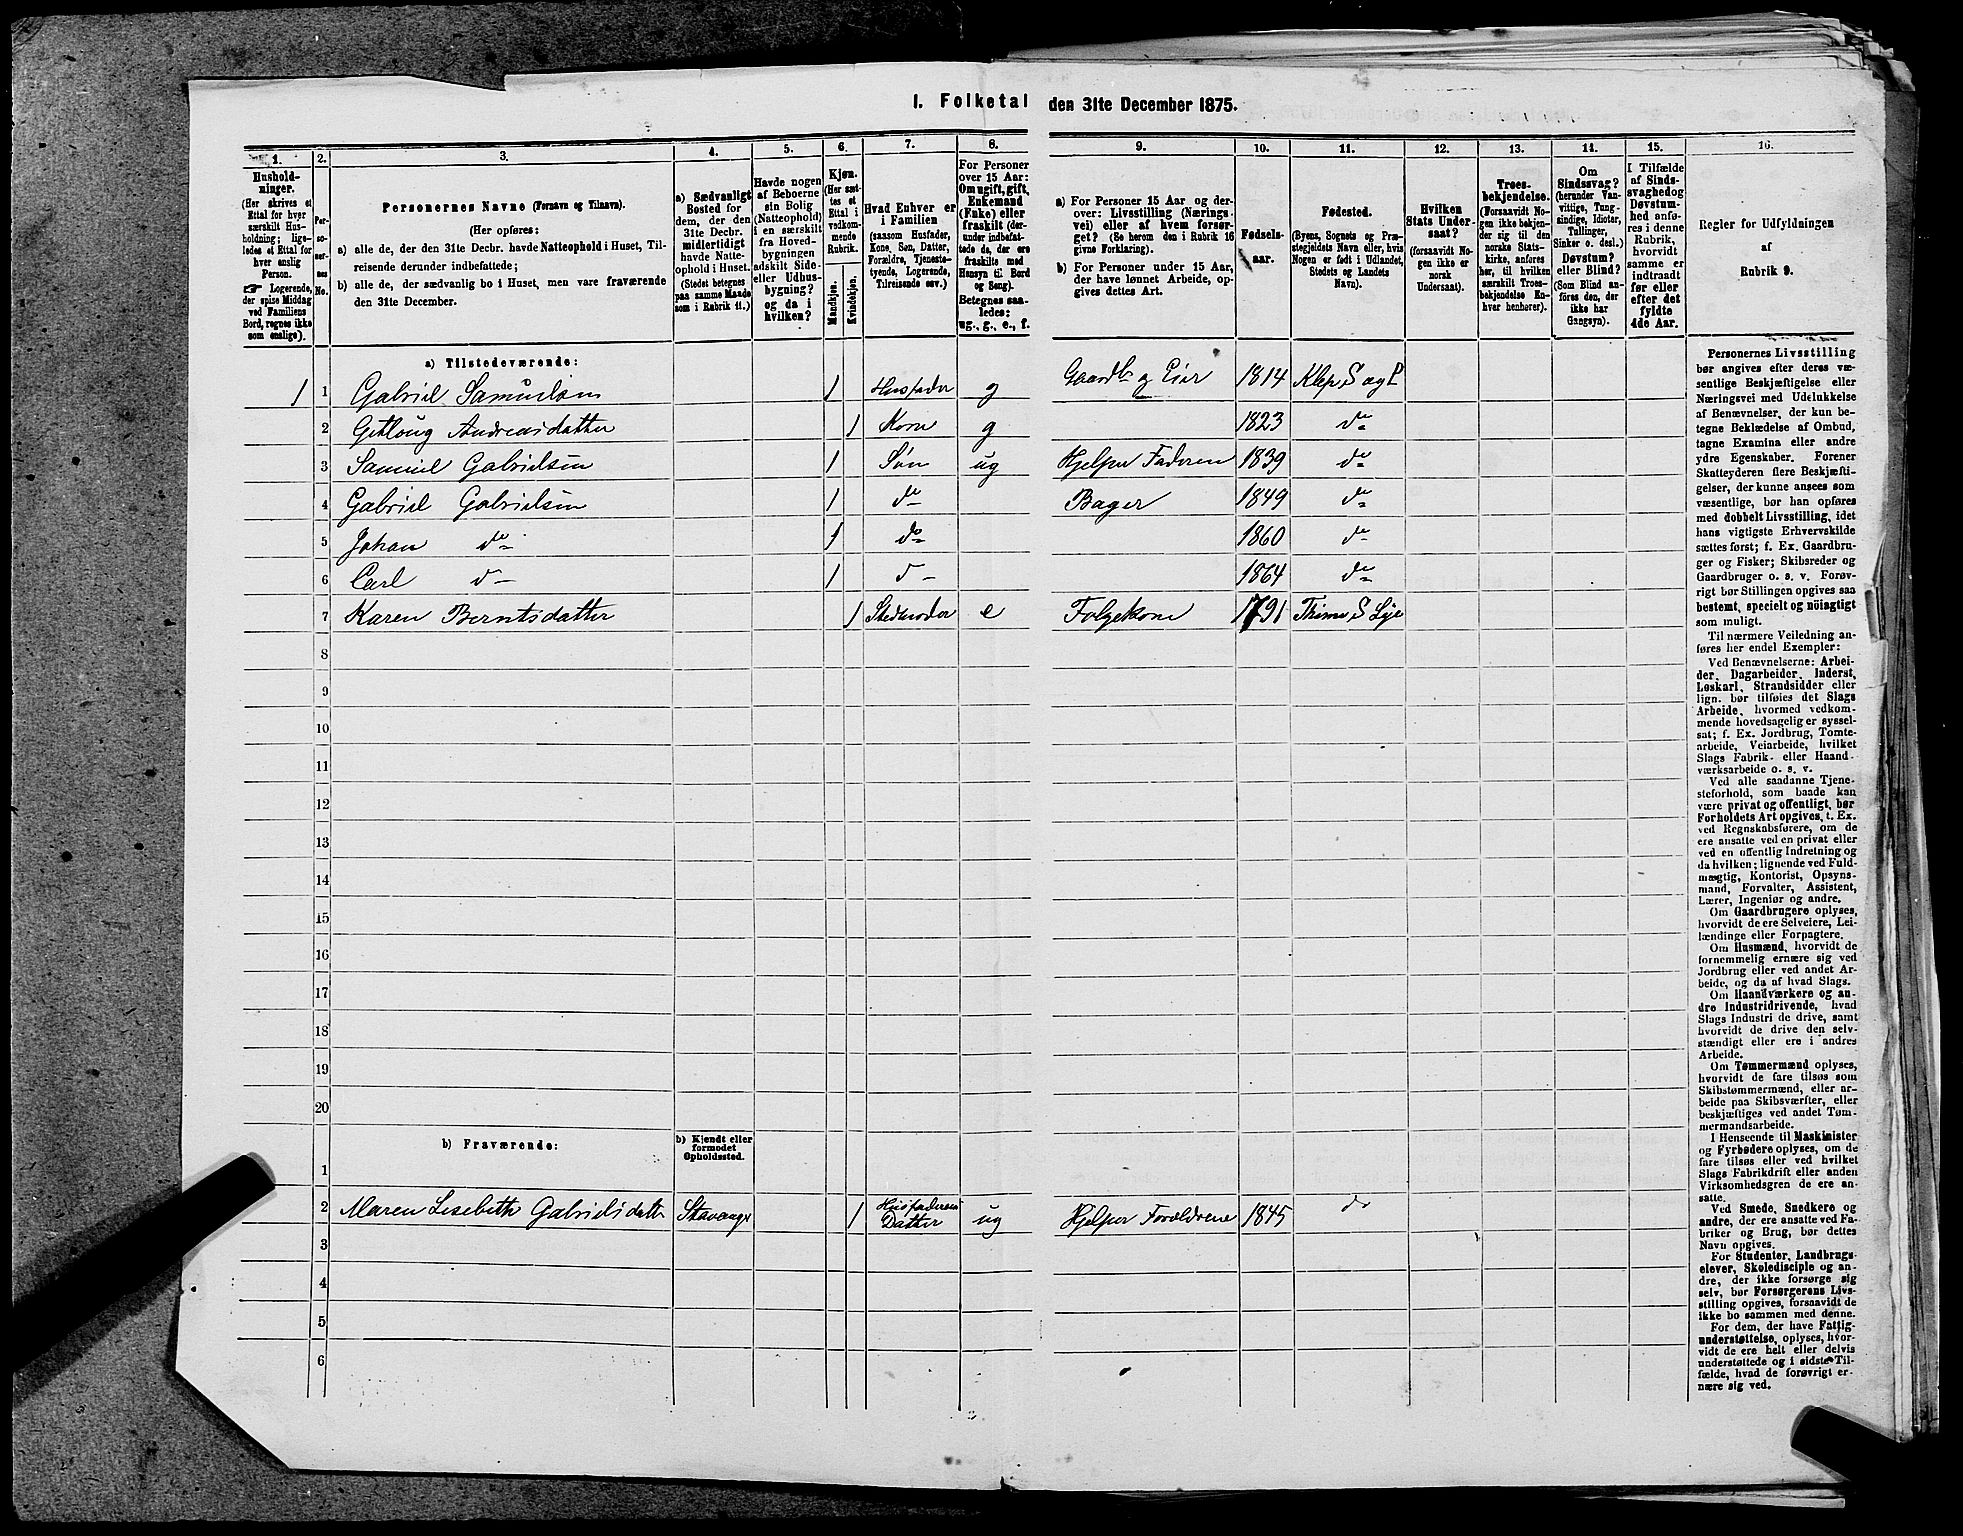 I. Folketal den 31te December 1875.
1. 2. 3. 4. 5. 6. 7. 8. 9. 10. 11. 12. 13. 14. 15. 16.
Husholdninger.
(Her skrives et
Ettal for hver
særskilt Husholdning; ligeledes
et Ettal for
hver enslig
Person.
☞ Logerende,
der spise Middag
ved Familiens
Bord, regnes ikke
som enslige).
Personernes No.
Personernes Navne (Fornavn og Tilnavn).
(Her opføres:
a) alle de, der den 31te Decbr. havde Natteophold i Huset, Tilreisende
derunder indbefattede;
b) alle de, der sædvanlig bo i Huset, men vare fraværende
den 31te December.
a) Sædvanligt
Bosted for
dem, der den
31te Decbr.
midlertidigt
havde Natteophold
i Huset.
(Stedet betegnes
paa samme Maade
som i Rubrik 11.)
Havde nogen
af Beboerne
sin Bolig
(Natteophold)
i en særskilt
fra Hovedbygningen
adskilt Side-
eller Udhusbygning?
og da i
hvilken?
Kjøn.
(Her sættes
et
Ettal i
vedkommende
Rubrik.
Mandkjøn.
Kvindekjøn.
Hvad Enhver er
i Familien
(saasom Husfader,
Kone, Søn, Datter,
Forældre, Tjenestetyende,
Logerende,
Tilreisende osv.)
For Personer
over 15 Aar:
Om ugift, gift,
Enkemand
(Enke) eller
fraskilt (derunder
indbefattede
de, der ere
fraskilte med
Hensyn til Bord
og Seng).
Betegnes saaledes:
ug., g., e., f.
a) For Personer 15 Aar og derover:
Livsstilling (Næringsvei)
eller af hvem forsørget?
(Se herom den i Rubrik 16
givne Forklaring).
b) For Personer under 15 Aar,
der have lønnet Arbeide, opgives
dettes Art.
Fødselsaar.
Fødested.
(Byens, Sognets og Præstegjeldets
Navn eller, hvis
Nogen er født i Udlandet,
Stedets og Landets
Navn).
Hvilken
Stats Undersaat?
(forsaavidt Nogen
ikke er
norsk
Undersaat).
Troesbekjendelse.
(Forsaavidt Nogen
ikke bekjender
sig til den
norske Statskirke,
anføres
her, til hvilken
særskilt Troesbekjendelse
Enhver
henhører).
Om
Sindssvag?
(herunder Vanvittige,
Tungsindige,
Idioter,
Tullinger,
Sinker o. desl.)
Døvstum?
eller Blind?
(Som Blind anføres
den, der
ikke har
Gangsyn).
I Tilfælde
af Sindssvaghed
og
Døvstumhed
anføres
i denne
Rubrik,
hvorvidt
samme er
indtraadt
før eller
efter det
fyldte
4de Aar.
Regler for Udfyldningen
af
Rubrik 9.
a) Tilstedeværende:
1 1 Gabriel Samuelsen 1 Husfader g Gaardbr og Eier 1814 Klep S og P
2 Andreasdatter 1 Kone g 1823 do
3 Samuel Gabrielsen 1 Søn ug Hjelper Faderen 1839 do
4 Gabriel Gabrielsen 1 do Bager 1849 do
5 Johan do 1 do 1860 do
6 Carl d— 1 d— 1864 do
7 Karen Berntsdatter 1 Stedmoder e Folgekone 1791 Thime S Lye
8
9
10
11
12
13
14
15
16
17
18
19
20
b) Fraværende:
b) Kjendt eller
formodet
Opholdssted.
1
2 Maren Lisebeth Gabrielsdatter Stavanger 1 Husfaderens Datter ug Hjelper Forældrene 1845 do
3
4
5
6
Personernes Livsstilling
bør angives efter deres væsentlige
Beskjæftigelse eller
Næringsvei med Udelukkelse
af Benævnelser, der kun betegne
Beklædelse af Ombud,
tagne Examina eller andre
ydre Egenskaber. Forener
Skatteyderen flere Beskjæftigelser,
der kunne ansees som
væsentlige, bør han opføres
med dobbelt Livsstilling, idet
hans vigtigste Erhvervskilde
sættes først; f. Ex. Gaardbruger
og Fisker; Skibsreder og
Gaardbruger o. s. v. Forøvrigt
bør Stillingen opgives saa
bestemt, specielt og nöiagtigt
som muligt.
Til nærmere Veiledning anføres
her endel Exempler:
Ved Benævnelserne: Arbeider,
Dagarbeider, Inderst,
Løskarl, Strandsidder eller
lign. bør tilføies det Slags
Arbeide, hvormed vedkommende
hovedsagelig er sysselsat;
f. Ex. Jordbrug, Tomtearbeide,
Veiarbeide, hvilket
Slags Fabrik- eller Haandværksarbeide
o. s. v.
Ved alle saadanne Tjenesteforhold,
som baade kan
være privat og offentligt, bør
Forholdets Art opgives, t. Ex.
ved Regnskabsførere, om de
ere ansatte ved en privat eller
ved en offentlig Indretning og
da hvilken; lignende ved Fuldmægtig,
Kontorist, Opsynsmand,
Forvalter, Assistent,
Lærer, Ingeniør og andre.
Om Gaardbrugere oplyses,
hvorvidt de ere Selveiere, Leilændinge
eller Forpagtere.
Om Husmænd, hvorvidt de
fornemmelig ernære sig ved
Jordbrug eller ved andet Arbeide,
og da af hvad Slags.
Om Haandværkere og andre
Industridrivende, hvad
Slags Industri de drive, samt
hvorvidt de drive den selvstændigt
eller ere i andres
Arbeide.
Om Tømmermænd oplyses,
hvorvidt de fare tilsøs som
Skibstømmermænd, eller arbeide
paa Skibsværfter, eller
beskjæftiges ved andet Tømmermandsarbeide.
I Henseende til Maskinister
og Fyrbødere oplyses, om de
fare tilsøs eller ved hvilket
Slags Fabrikdrift eller anden
Virksomhedsgren de ere ansatte.
Ved Smede, Snedkere og
andre, der ere ansatte ved Fabriker
og Brug, bør dettes
Navn opgives.
For Studenter, Landbrugselever,
Skoledisciple og andre,
der ikke forsørge sig
selv, bør Forsørgerens Livsstilling
opgives, forsaavidt de
ikke bo sammen med denne.
For dem, der have Fattigunderstøttelse,
oplyses, hvorvidt
de ere helt eller delvis
understøttede og i sidste Tilfælde,
hvad de forøvrigt ernære
sig ved.